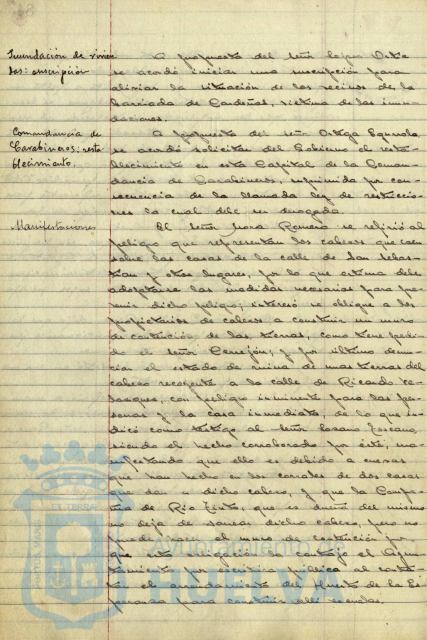 Inundación de vivien
das: suscripción
A propuesta del señor López Ortiz
se acordó iniciar una suscripción para
aliviar la situación de los vecinos de la
barriada de Cardeñas, víctima de las inun
daciones.
Comandancia de
Carabineros: resta
blecimiento.
A propuesta del señor Ortega
se acordó solicitar del Gobierno el resta-
blecimiento en esta Capital de la Coman
dancia de Carabineros, suprimida por con
secuencia de la llamada ley de restriccio
nes la cual debe ser derogada.
Manifestaciones
El señor Mora Romero se refirió al
peligro que representan los cabezos que caen
sobre las casas de la calle de San Sebas
tián y otros lugares, por lo que estima debe
adoptarse las medidas necesarias para pre
venir dicho peligro; interesó se obligue a los
propietarios de cabezos a construir un muro
de contención de las tierras, como tiene pedi
do el señor Cerejón; y por último denun
cia el estado de ruina de unas tierras del
cabezo recayente a la calle de Ricardo Ve
lázquez, con peligro inminente para las per
sonas y la casa inmediata, de lo que in
dicó como testigo al señor Lozano Toscano,
siendo el hecho corroborado por éste, ma
nifestando que ello es debido a cuevas
que han hecho en los corrales de dos casas
que dan a dicho cabezo, y que la Compa
ñía de Rio Tinto, que es dueña del mismo
no deja de sanear dicho cabezo, pero no
puede hacer el muro de contención por
que esta obligación la contrajo el Ayun
tamiento por escritura pública al contra
tar el arrendamiento del Huerto de la Es
peranza para construir allí escuelas.
Ayuntamiento de
HUELVA